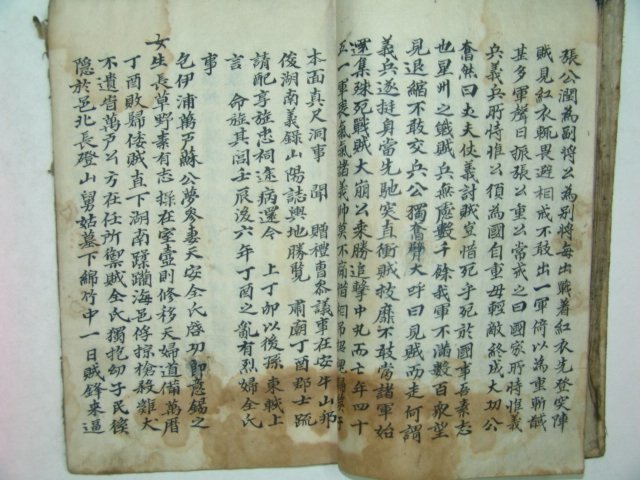 張公潤爲副將公爲別將每出戰着紅衣先登突陣
賊見紅衣輒畏避相戒不敢出一軍倚以爲重斬馘
甚多軍聲日振張公重公常戒之曰國家所恃惟義
兵義兵所恃惟公須爲國自重毋輕敵終成大功公
奮然曰丈夫仗義討賊豈惜死乎死於國事吾素志
也星州之戰賊兵無慮數千餘我軍不滿數百取望
見退縮不敢交兵公獨奮臂大呼曰見賊而走何謂
義兵遂挺身當先馳突直衝賊技靡不敢當諸軍始
還集殊死戰賊大崩公乘勝追擊中丸而亡年四十
五一軍喪氣諸義帥莫不痛惜相
本面真尺洞事聞贈禮曹參議事在安牛山邦
俊湖南義錄山陽誌輿地勝覽肅廟丁酉郡士疏
請配享旌忠祠遠病還今上丁卯以後孫東戟上
言命旌其閭壬辰後六年丁酉之亂有烈婦全氏
事
乞伊浦萬戶蘇公夢參妻天安全氏啓功卽意錫之
女生長草野素有志操在室壼則修移天婦道備萬曆
丁酉敗歸倭賊直下湖南蹂躪海邑俘掠槍殺雞犬
不遺皆萬戶公方在任所禦賊全氏獨抱幼子民俊
隱於邑北長磴山舅姑墓下綿竹中一日賊鋒來逼